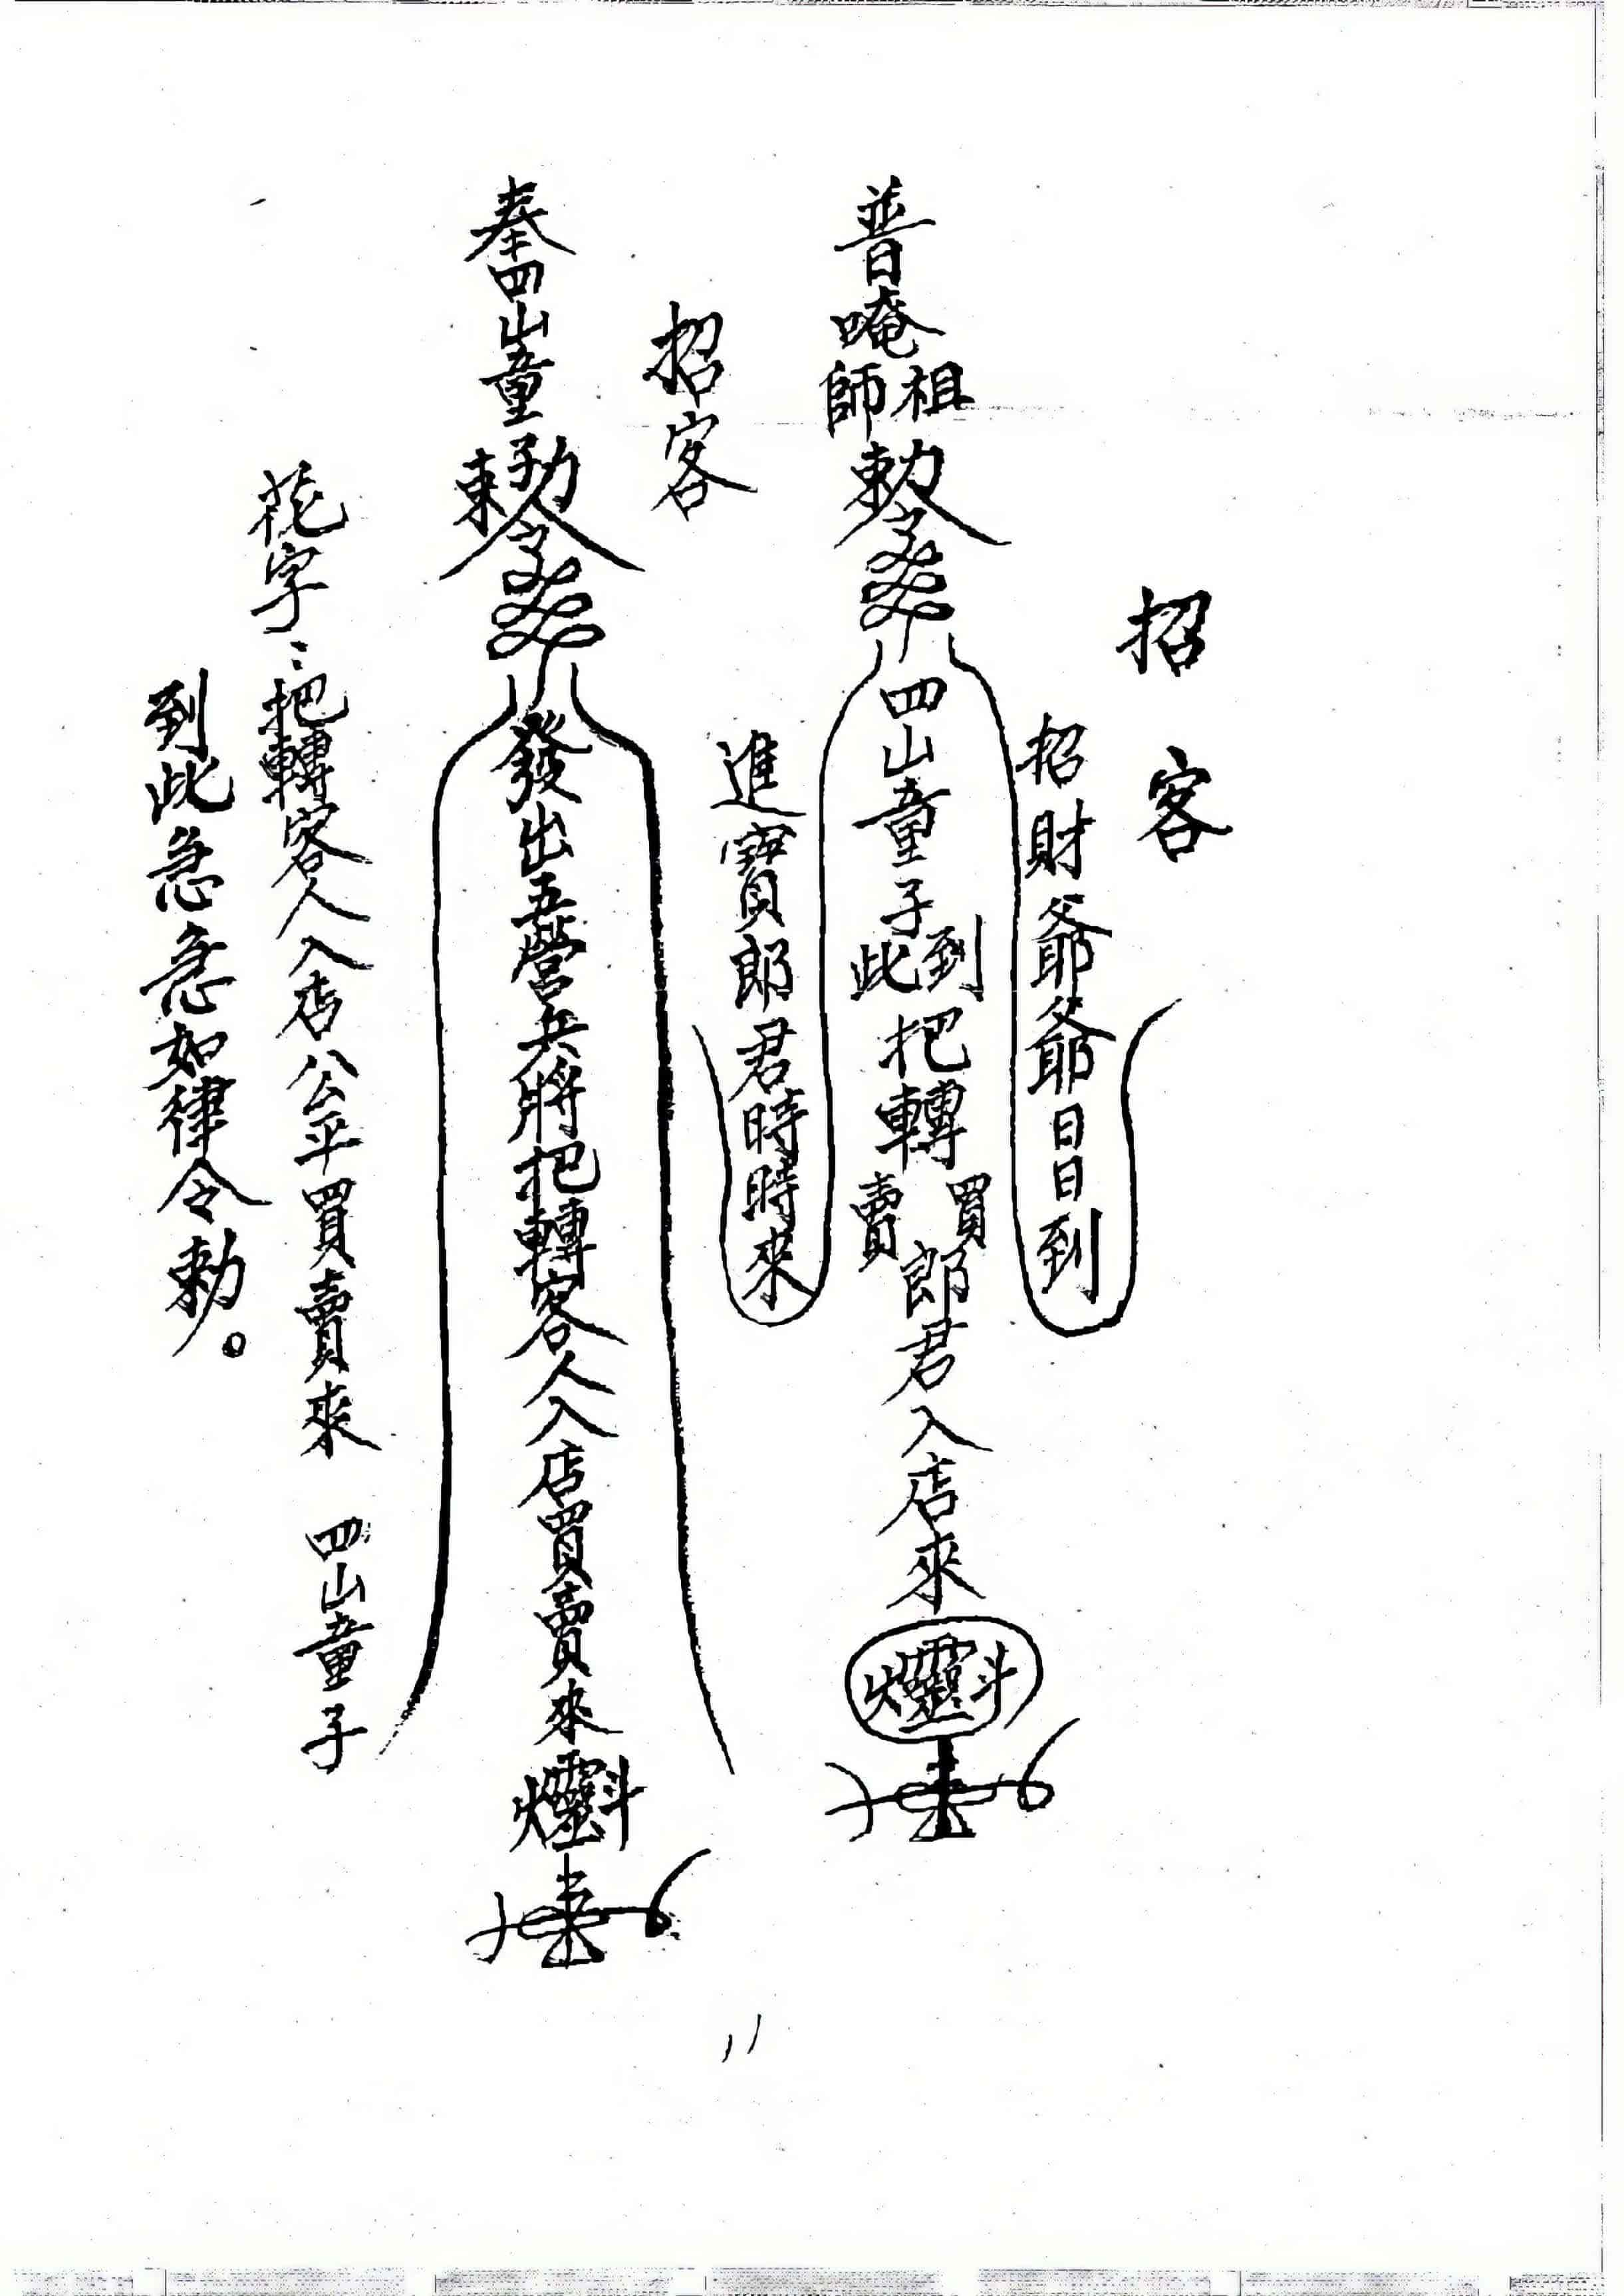 招客
招財爺爺日日到
普唵祖師勅令
四山童子到此把轉買賣郎君入店來
進寶郎君時時來
招客
奉四山童子勅令
發出五營兵將把轉客人入店買賣來
花字:把轉客人入店公平買賣來 四山童子
到此急急如律令勅。
11